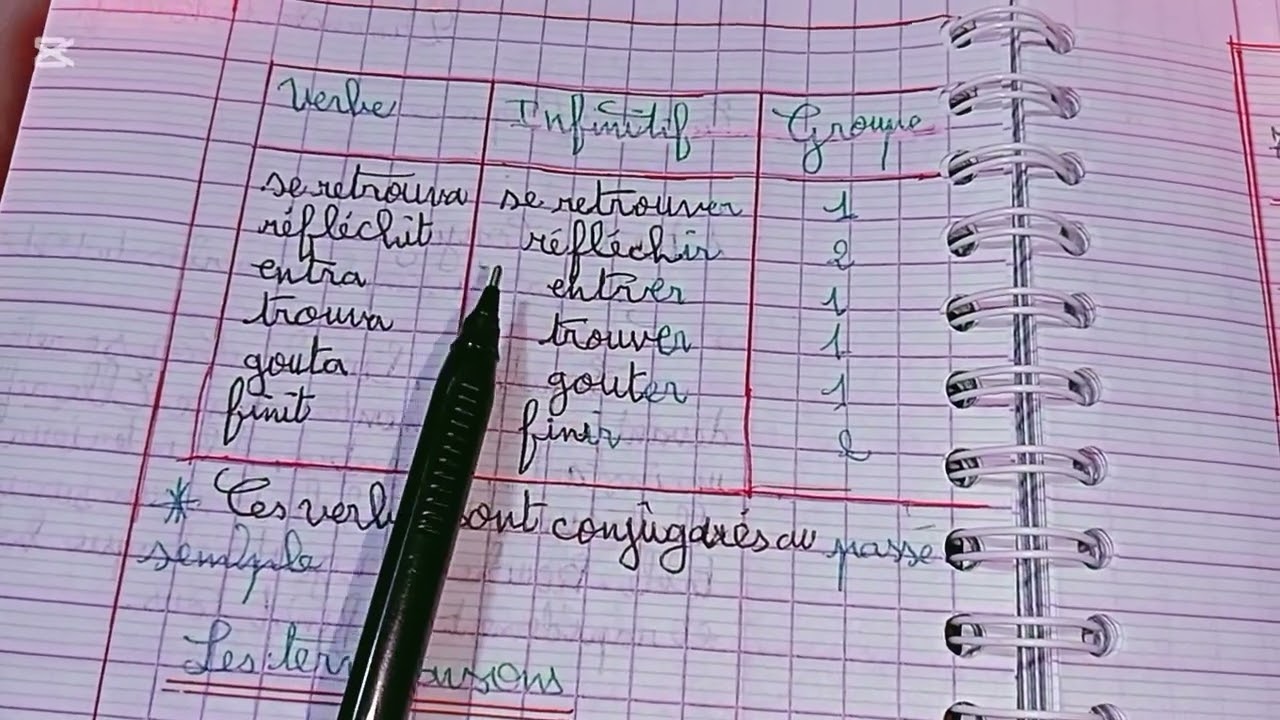 Verbe Infinitif Groupe
se retrouva se retrouver 1
réfléchit réfléchir 2
entra entrer 1
trouva trouver 1
gouta gouter 1
finit finir 2
* Ces sont conjugarés au passé
semple
Les